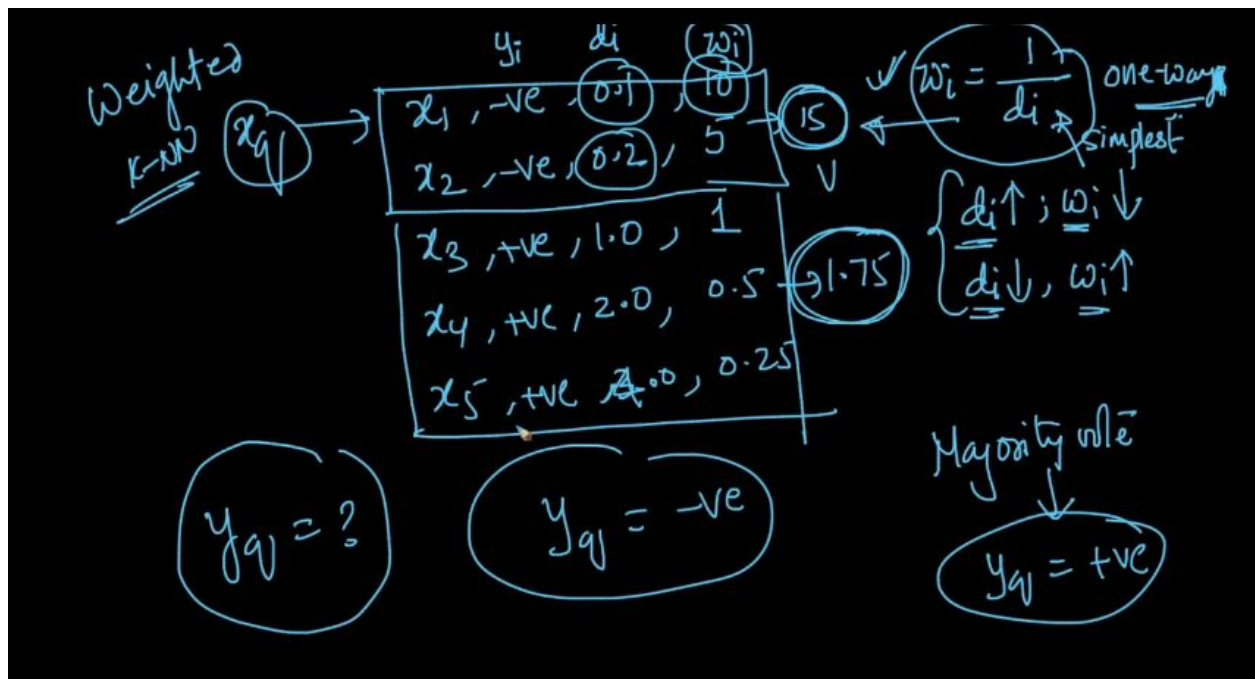 Weighted
K-NN
xq
yi di wi
x1, -ve, 0.1, 10
x2, -ve, 0.2, 5
15
V
x3, +ve, 1.0, 1
x4, +ve, 2.0, 0.5
1.75
x5, +ve 4.0, 0.25
wi = 1/di
one-way
simplest
di↑ ; wi↓
di↓, wi↑
yq = ?
yq = -ve
Majority vote
yq = +ve